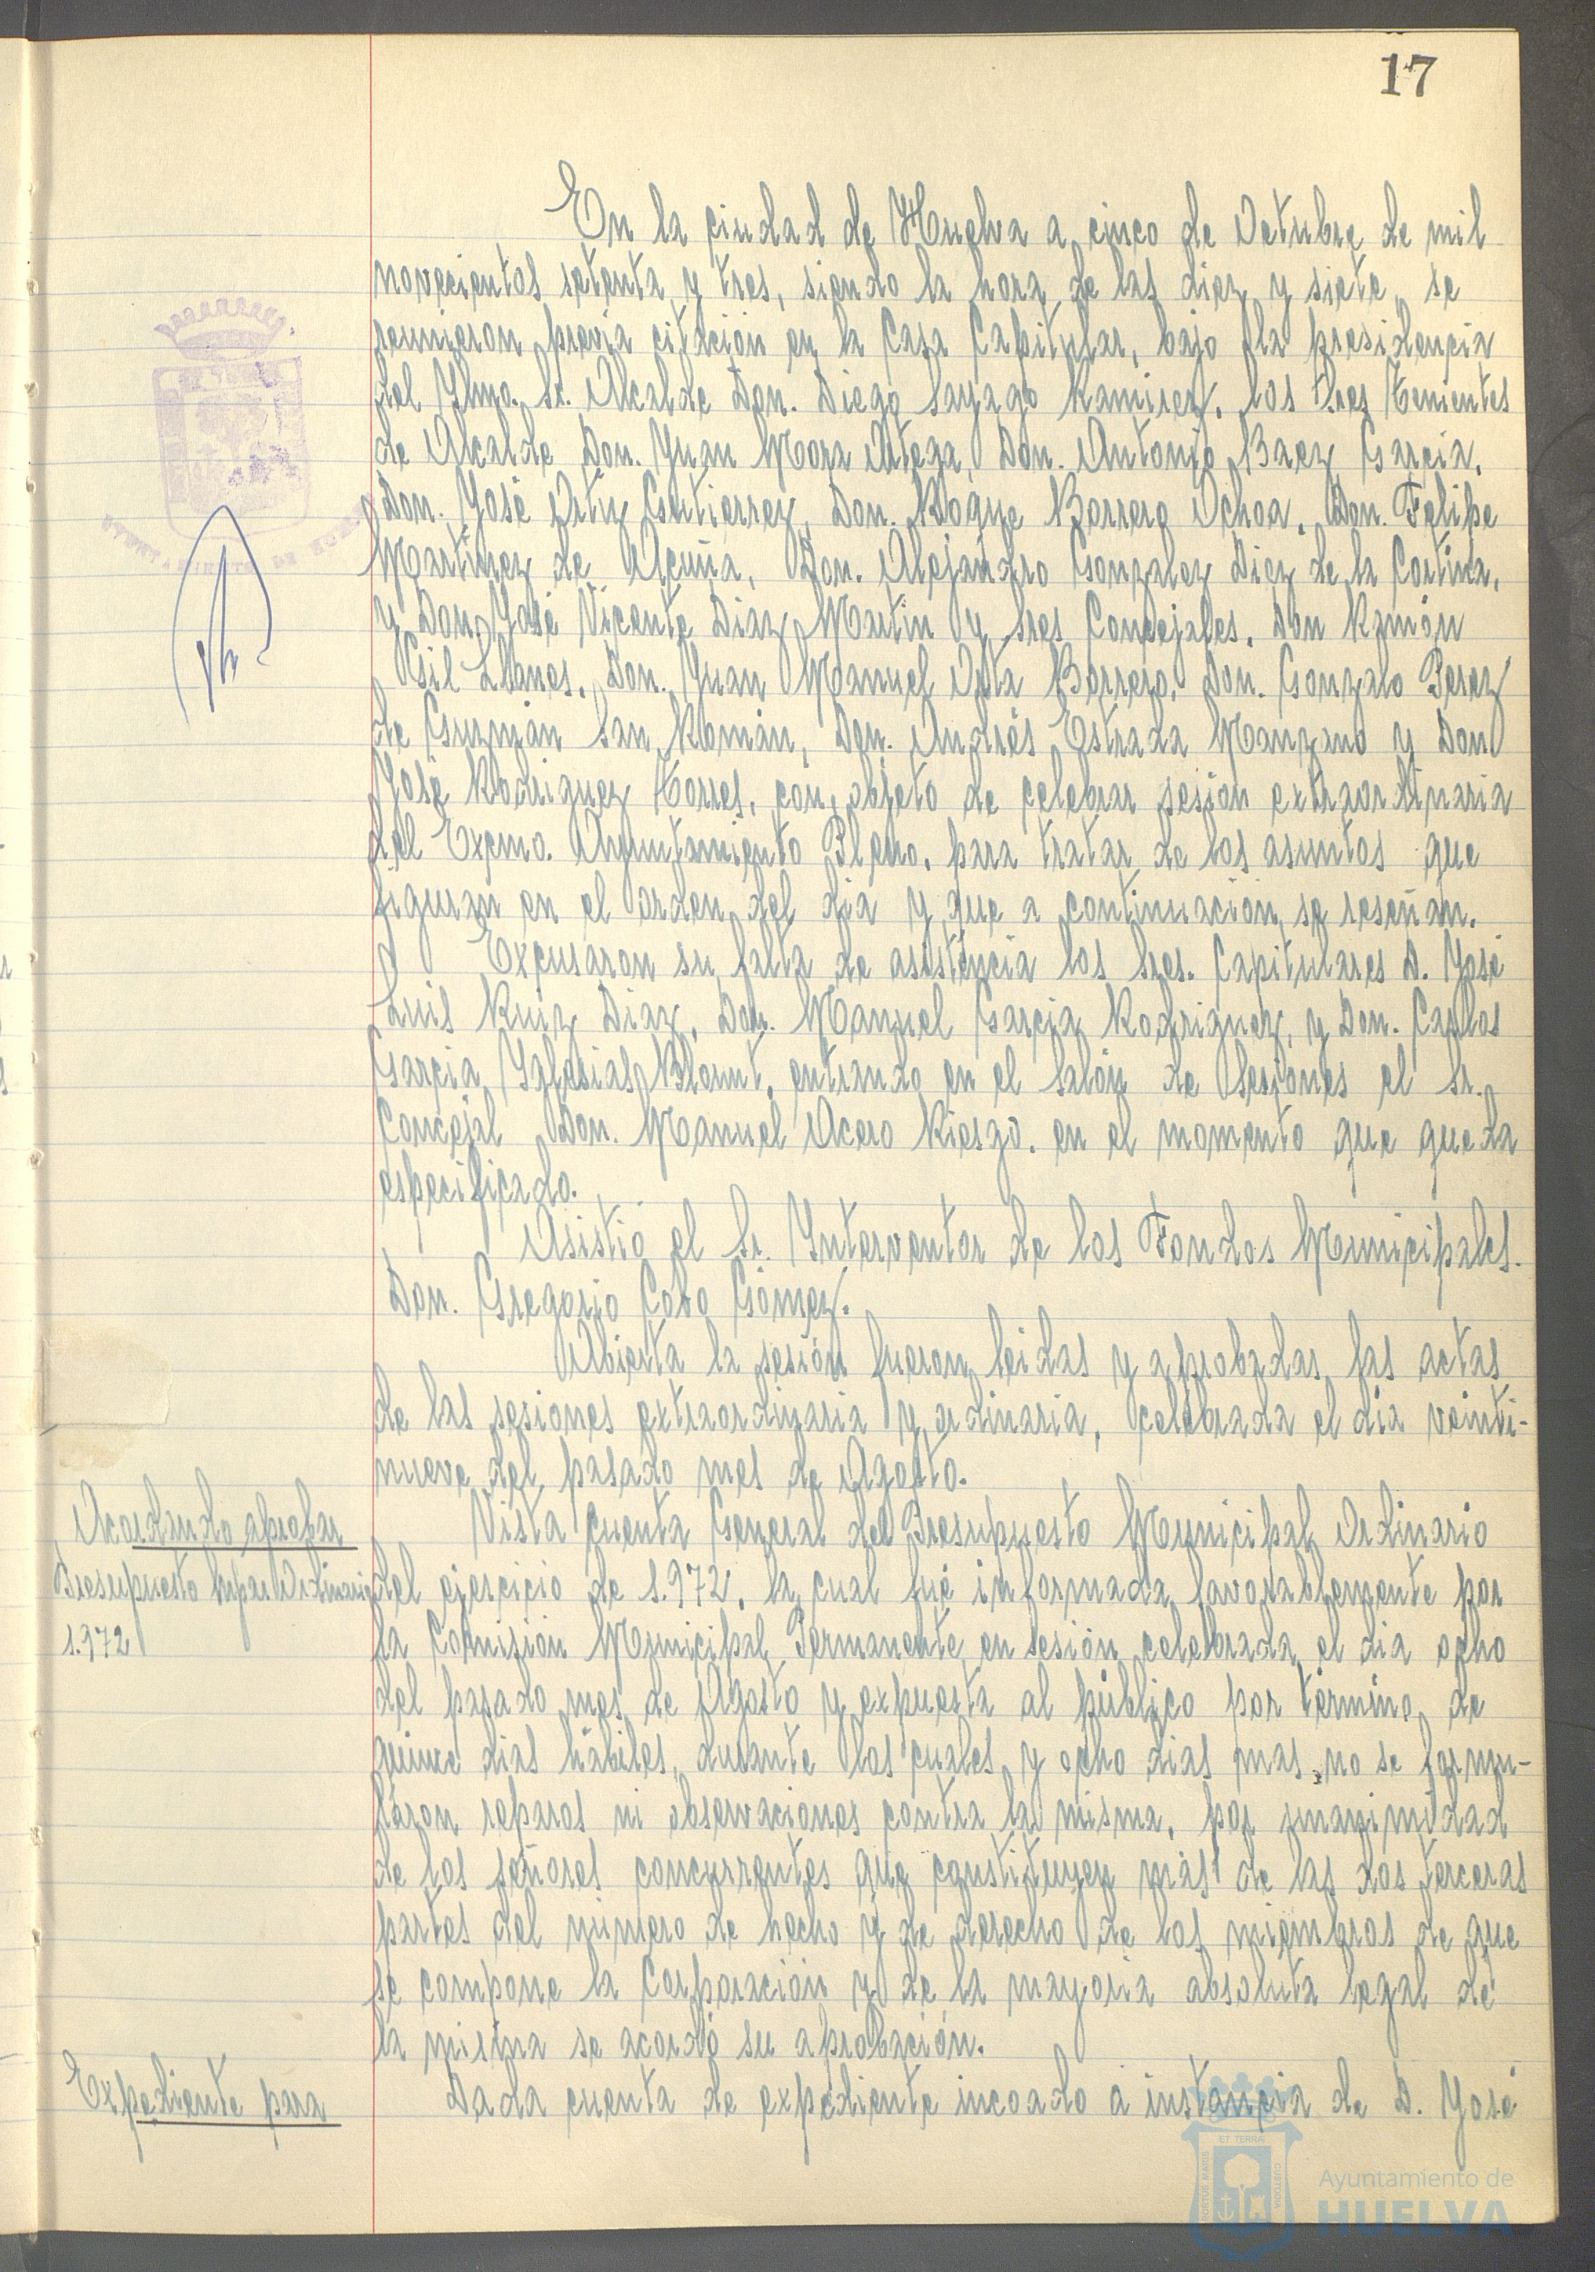 17
En la ciudad de Huelva a cinco de Octubre de mil
novecientos setenta y tres, siendo la hora de las diez y siete, se
reunieron previa citación en la Casa Capitular, bajo la presidencia
del Ylmo. Sr. Alcalde Don. Diego Sayago Ramirez, los Sres Tenientes
de Alcalde Don. Juan Mora Don. Antonio Baez Garcia,
Don. José Ortiz Gutierrez, Don. Roque Borrero Ochoa, Don. Felipe
Martinez de Acuña, Don. Alejandro Gonzalez Diez de la Cortina,
y Don José Vicente Diaz Martin y Sres Concejales, Don Ramón
Gil Llanes, Don. Juan Manuel Orta Borrero, Don. Gonzalo Perez
de Guzmán San Román, Don. Andrés Estrada Manzano y Don
José Rodriguez Torres, con objeto de celebrar sesión extraordinaria
del Excmo. Ayuntamiento Pleno, para tratar de los asuntos que
figuran en el orden del dia y que a continuación se reseñan.
Excusaron su falta de asistencia los Sres. Capitulares D. José
Luis Ruiz Diaz, Don. Manuel Garcia Rodriguez, y Don. Carlos
Garcia entrando en el Salón de Sesiones el Sr.
Concejal Don. Manuel Acero Riesgo, en el momento que queda
especificado.
Asistió el Sr. Ynterventor de los Fondos Municipales.
Don. Gregorio Cobo Gómez.
Abierta la sesión fueron leidas y aprobadas las actas
de las sesiones extraordinaria y ordinaria, celebrada el dia veinti-
nueve del pasado mes de Agosto.
Acordando aprobar
Presupuesto Mpal Ordinario
1.972
Vista Cuenta General del Presupuesto Municipal Ordinario
del ejercicio de 1.972, la cual fué informada favorablemente por
la Comisión Municipal Permanente en sesión celebrada el dia ocho
del pasado mes de Agosto y expuesta al público por término de
quince dias hábiles, durante los cuales y ocho dias mas no se formu-
laron reparos ni observaciones contra la misma, por unanimidad
de los señores concurrentes que constituyen más de las dos terceras
partes del número de hecho y de derecho de los miembros de que
se compone la Corporación y de la mayoria absoluta legal de
la misma se acordó su aprobación.
Expediente para
Dada cuenta de expediente incoado a instancia de D. José
PORTUS MARIS
ET TERRAE
CUSTODIA
Ayuntamiento de
HUELVA